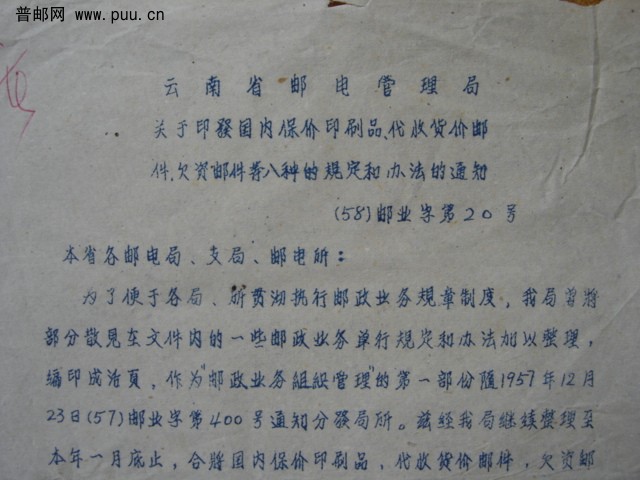 普邮网 www.puu.cn
云南省邮电管理局
关于印發国内保价印刷品、代收货价邮
件、欠资邮件等八种的规定和办法的通知
(58)邮业字第20号
本省各邮电局、支局、邮电所：
为了便于各局、所贯沏执行邮政业务规章制度，我局曾將
部分散見在文件内的一些邮政业务单行规定和办法加以整理，
编印成活頁，作为"邮政业务組织管理"的第一部份随1957年12月
23日(57)邮业字第400号通知分發局所。茲经我局继续整理至
本年一月底止，合將国内保价印刷品，代收货价邮件，欠资邮